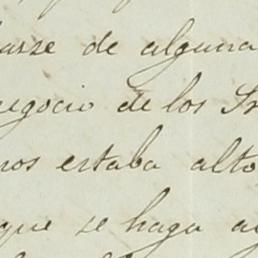 arse de alguna
negocio de los
nos estaba alto
que se haga